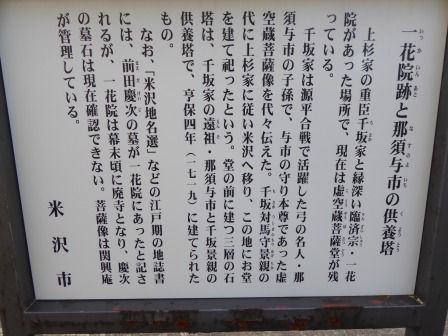 一花院跡と那須与市の供養塔
上杉家の重臣千坂家と縁深い臨済宗・一花
院があった場所で、現在は虚空蔵菩薩堂が残
っている。
千坂家は源平合戦で活躍した弓の名人・那
須与市の子孫で、与市の守り本尊であった虚
空蔵菩薩像を代々伝えた。千坂対馬守景親の
代に上杉家に従い米沢へ移り、この地にお堂
を建て祀ったという。堂の前に建つ三層の石
塔は、千坂家の遠祖・那須与市と千坂景親の
供養塔で、享保四年(一七一九)に建てられた
もの。
なお、「米沢地名選」などの江戸期の地誌書
には、前田慶次の墓が一花院にあったと記さ
れるが、一花院は幕末頃に廃寺となり、慶次
の墓石は現在確認できない。菩薩像は関興庵
が管理している。
米沢市